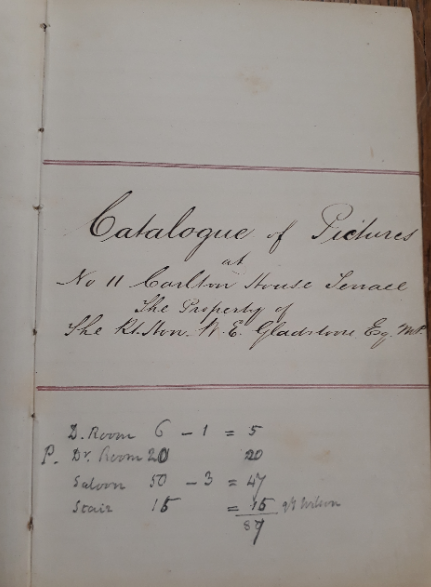 Catalogue of Pictures
at
No 11 Carlton House Terrace
The Property of
The Rt. Hon. W. E. Gladstone Esq. M.P.
D. Room 6 - 1 = 5
P. Dr. Room 20 20
Saloon 50 - 3 = 47
Stair 15 = 15
87